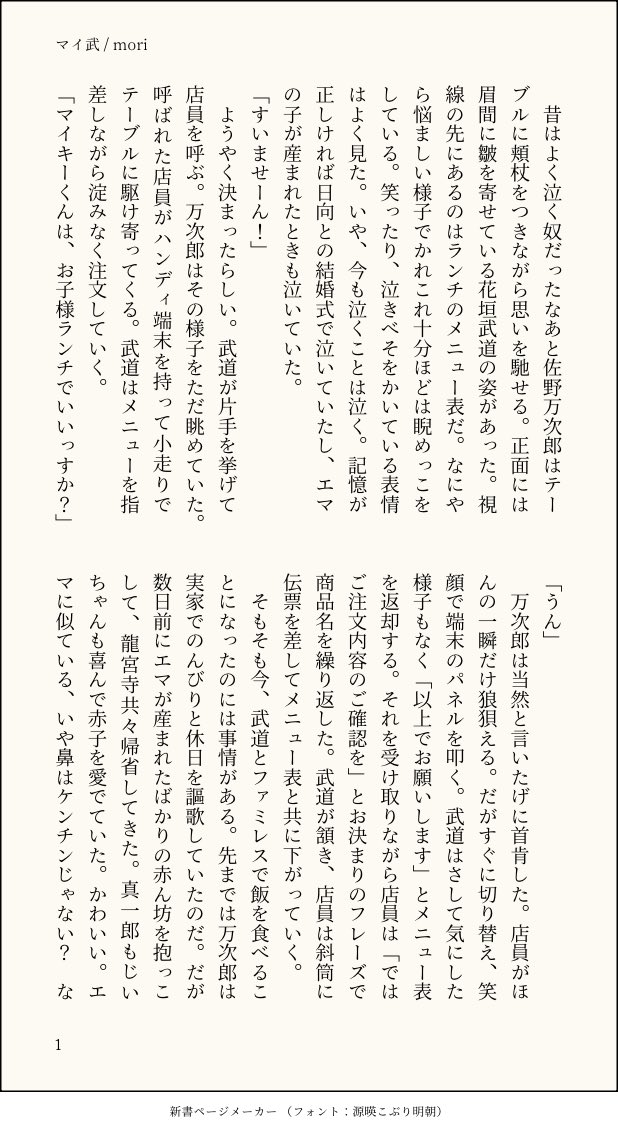 マイ武 / mori
　昔はよく泣く奴だったなあと佐野万次郎はテー
ブルに頬杖をつきながら思いを馳せる。正面には
眉間に皺を寄せている花垣武道の姿があった。視
線の先にあるのはランチのメニュー表だ。なにや
ら悩ましい様子でかれこれ十分ほどは睨めっこを
している。笑ったり、泣きべそをかいている表情
はよく見た。いや、今も泣くことは泣く。記憶が
正しければ日向との結婚式で泣いていたし、エマ
の子が産まれたときも泣いていた。
「すいませーん！」
　ようやく決まったらしい。武道が片手を挙げて
店員を呼ぶ。万次郎はその様子をただ眺めていた。
呼ばれた店員がハンディ端末を持って小走りで
テーブルに駆け寄ってくる。武道はメニューを指
差しながら淀みなく注文していく。
「マイキーくんは、お子様ランチでいいっすか？」
「うん」
　万次郎は当然と言いたげに首肯した。店員がほ
んの一瞬だけ狼狽える。だがすぐに切り替え、笑
顔で端末のパネルを叩く。武道はさして気にした
様子もなく「以上でお願いします」とメニュー表
を返却する。それを受け取りながら店員は「では
ご注文内容のご確認を」とお決まりのフレーズで
商品名を繰り返した。武道が頷き、店員は斜筒に
伝票を差してメニュー表と共に下がっていく。
　そもそも今、武道とファミレスで飯を食べるこ
とになったのには事情がある。先までは万次郎は
実家でのんびりと休日を謳歌していたのだ。だが
数日前にエマが産まれたばかりの赤ん坊を抱っこ
して、龍宮寺共々帰省してきた。真一郎もじい
ちゃんも喜んで赤子を愛でていた。かわいい。エ
マに似ている、いや鼻はケンチンじゃない？　な
1
新書ページメーカー（フォント：源暎こぶり明朝）